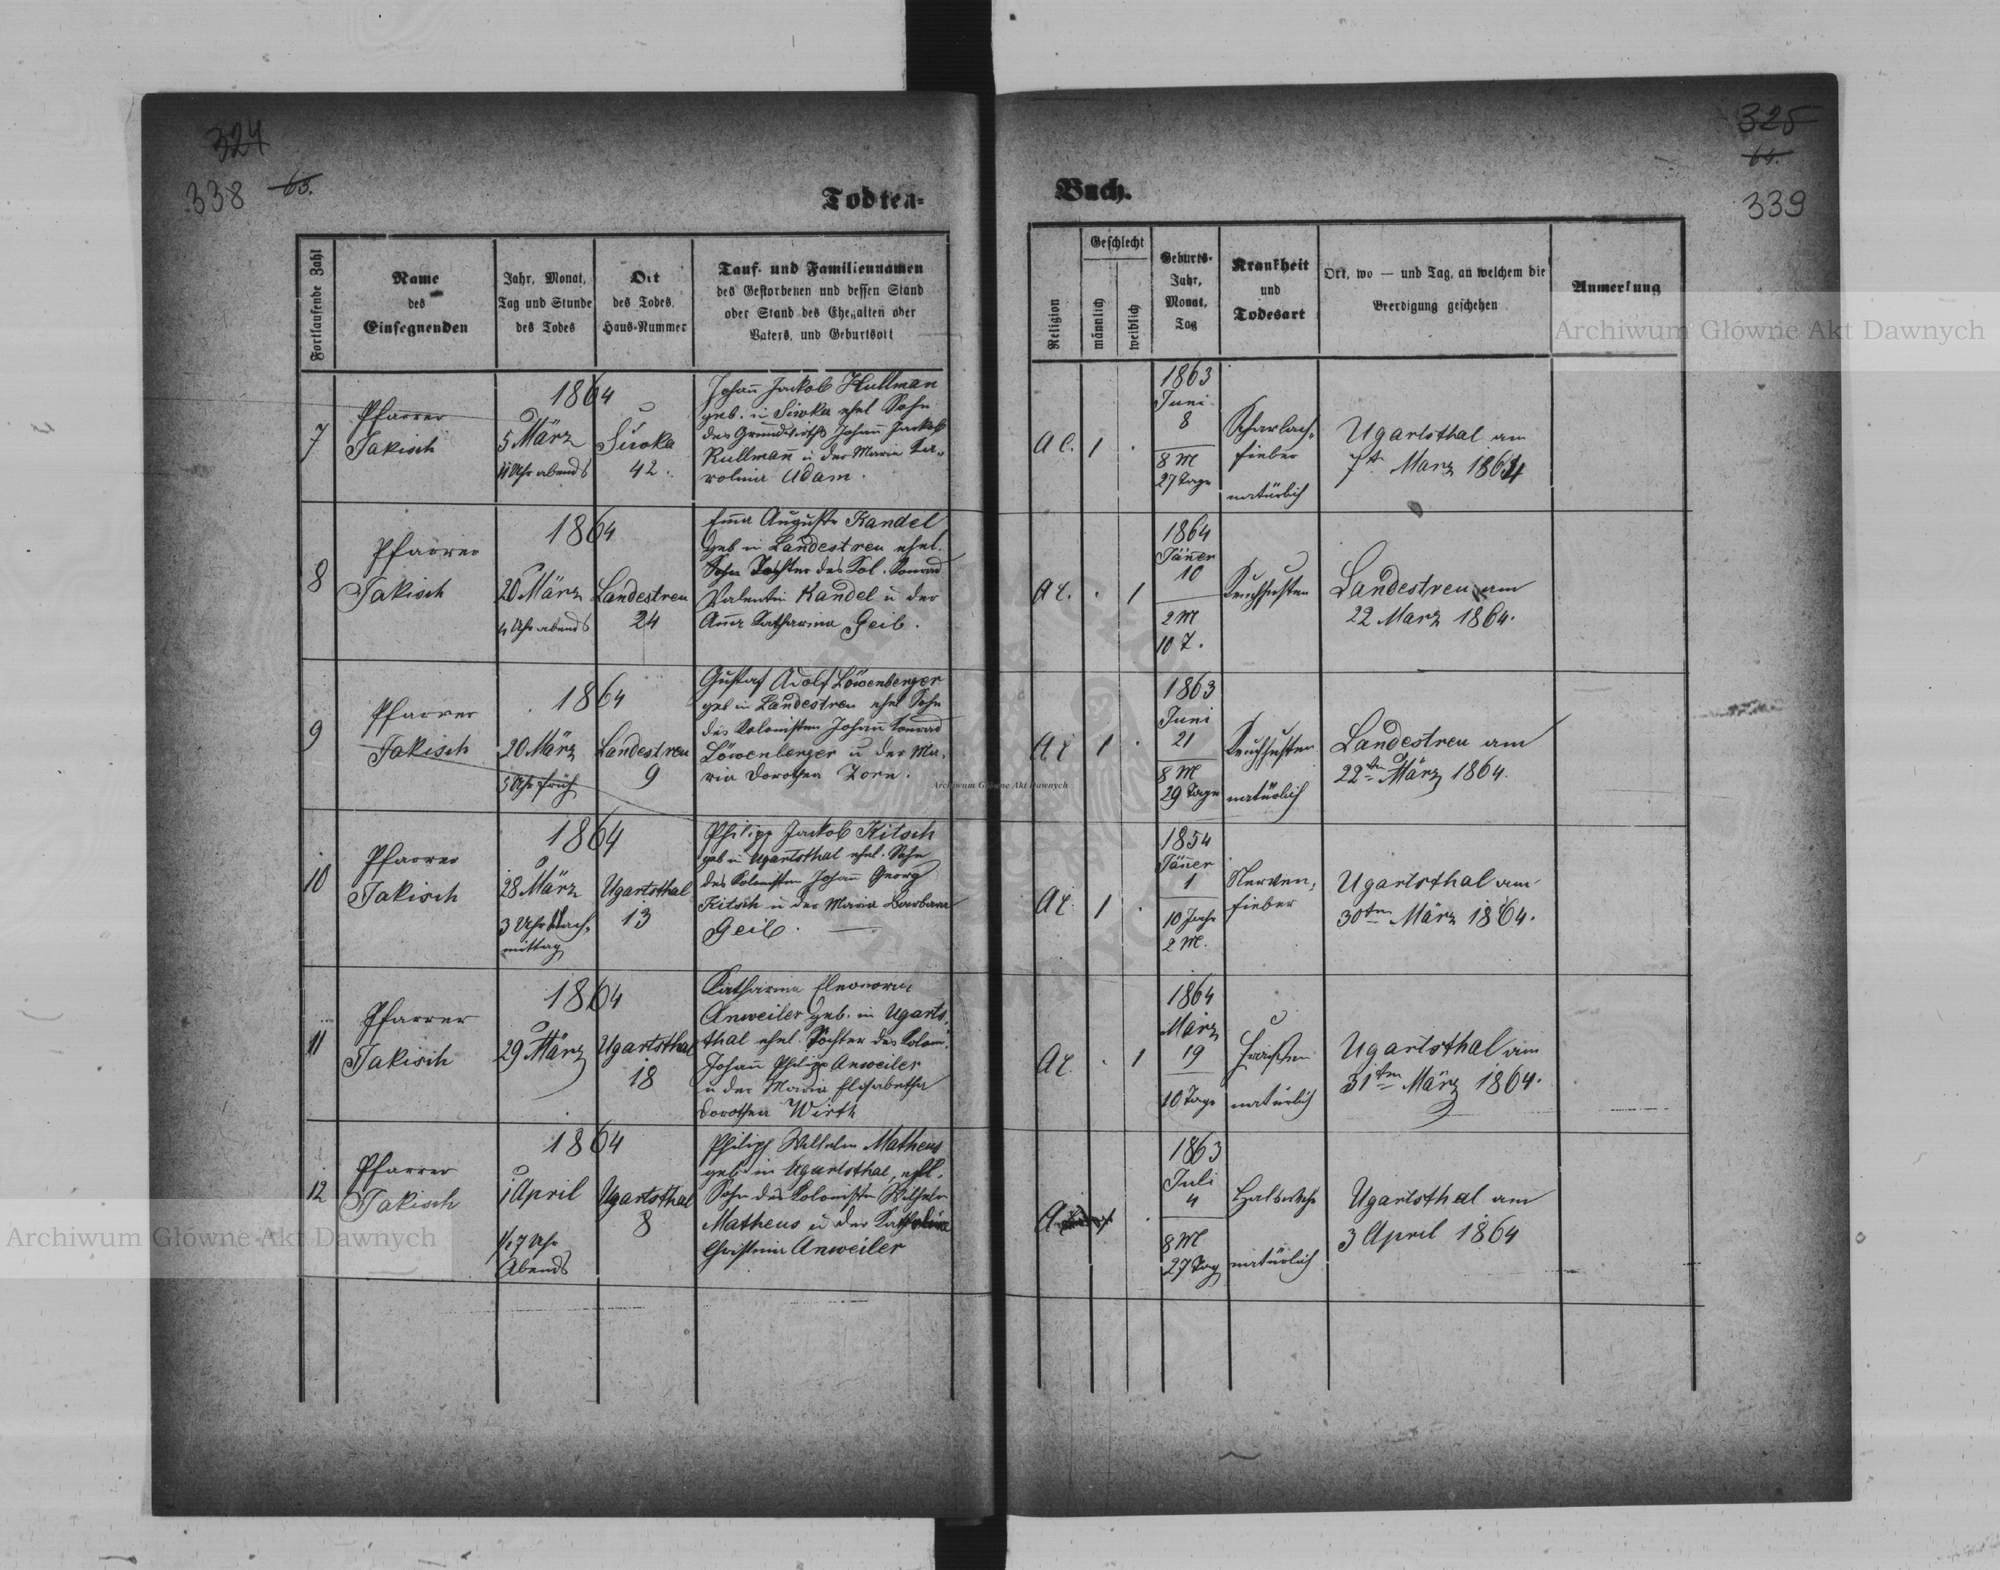 324
338 63.
Todten-
Buch.
325
64.
339
Fortlaufende Zahl
Name
des
Einsegnenden
Jahr, Monat,
Tag und Stunde
des Todes
Ort
des Todes,
Haus-Nummer
Tauf- und Familiennamen
des Gestorbenen und dessen Stand
oder Stand des Ehegatten oder
Vaters, und Geburtsort
Religion
Geschlecht
männlich
weiblich
Geburts-
Jahr,
Monat,
Tag
Krankheit
und
Todesart
Ort, wo — und Tag, an welchem die
Beerdigung geschehen
Anmerkung
7
Pfarrer
Jakisch
1864
5 März
11 Uhr abends
Siwka
42.
Johañ Jackob Hullman
geb. in Siwka ehel Sohn
des Grundwirths Johañ Jackob
Rullmañ u der Maria Ka-
rolina Adam.
A C.
1
.
1863
Juni
8
8 M
27 Tage
Scharlach-
fieber
natürlich
Ugartsthal am
7t Marz 1864
8
Pfarrer
Jakisch
1864
20 März
4 Uhr abends
Landestreu
24
Emma Auguste Kandel
geb in Landestreu ehel.
Sohn Tochter des Kol. Konrad
Valentin Kandel u der
Anna Katharina Geib.
A C.
.
1
1864
Jäner
10
2 M
10 T.
Keuchhusten
Landestreu am
22 Marz 1864.
9
Pfarrer
Jakisch
1864
20 März
5 Uhr früh
Landestreu
9
Gustaf Adolf Löwenberger
geb in Landestreu ehel Sohn
des Kolonisten Johañ Konrad
Löwenberger u der Ma-
ria Dorothea Zorn.
A C
1
.
1863
Juni
21
8 M
29 Tage
Keuchhusten
natürlich
Landestreu am
22ten März 1864.
10
Pfarrer
Jakisch
1864
28 März
3 Uhr Nach-
mittag
Ugartsthal
13
Philipp Jackob Kitsch
geb in Ugartsthal ehel. Sohn
des Kolonisten Johañ Georg
Kitsch u der Maria Barbara
Geib.
A C.
1
.
1854
Jäner
1
10 Jahr
2 M.
Nerven-
fieber
Ugartsthal am
30ten März 1864.
11
Pfarrer
Jakisch
1864
29 März
Ugartsthal
18
Katharina Eleonora
Anweiler geb. in Ugarts-
thal ehel. Tochter des Kolon.
Johañ Philipp Anweiler
u der Maria Elisabetha
Dorothea Wirth
A C.
.
1
1864
März
19
10 Tage
Fraisen
natürlich
Ugartsthal am
31ten März 1864.
12
Pfarrer
Jakisch
1864
1 April
1/2 7 Uhr
Abends
Ugartsthal
8
Philipp Wilhelm Matheus
geb. in Ugartsthal, ehl.
Sohn des Kolonisten Wilhelm
Matheus u der
Christina Anweiler
.
1863
Juli
4
8 M
27 Tag
natürlich
Ugartsthal am
3 April 1864
Archiwum Główne Akt Dawnych
Archiwum Główne Akt Dawnych
Archiwum Główne Akt Dawnych